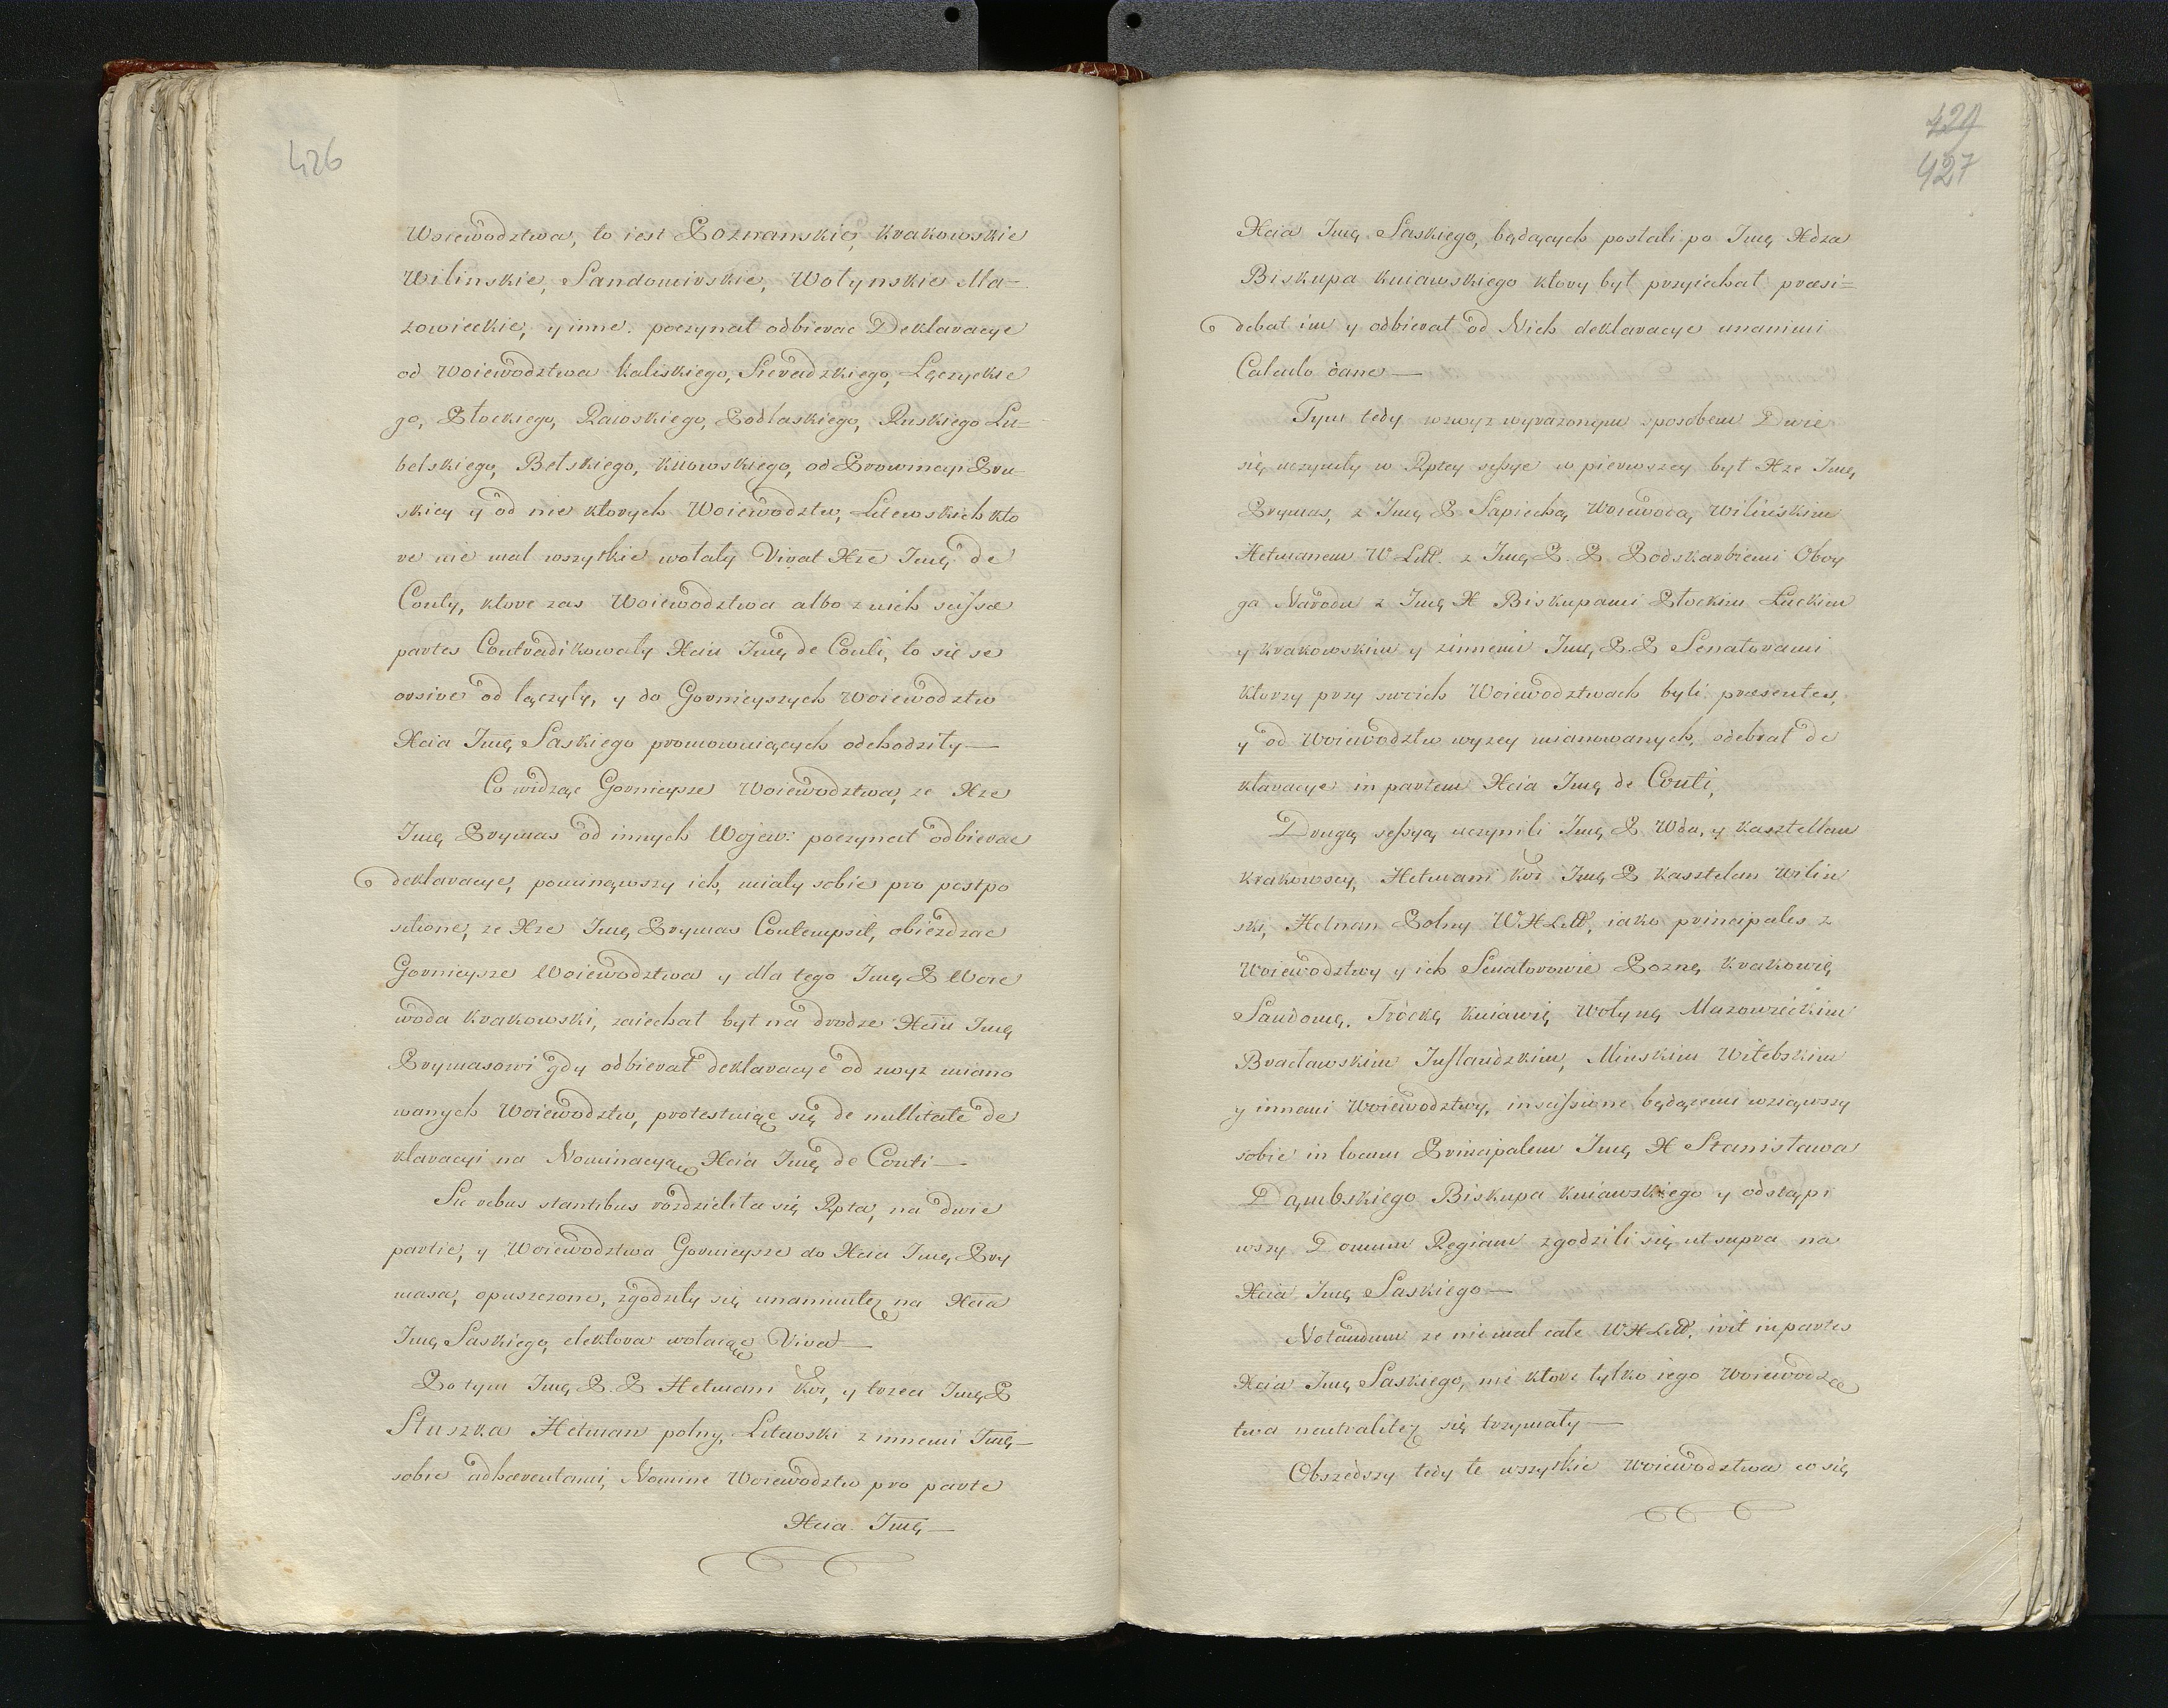 426
Woiewodztwa, to iest Poznanskie, Krakowskie
Wilinskie, Sandomirskie, Wołynskie Ma-
zowieckie, y inne. poczynał odbierac Deklaracye
od Woiewodztwa Kaliskiego, Sieradzkiego, Łęczyckie
go, Płockiego, Rawskiego, Podlaskiego, Ruskiego Lu-
belskiego, Bełskiego, Kiiowskiego, od Prowincyi Pru-
skiey y od nie ktorych Woiewodztw, Litewskich kto
re nie mal wszytkie wołały Vivat Xże Jmę de
Conty, ktore zas Woiewodztwa albo z nich scissæ
partes Contradikowały Xciu Jmę de Conti, to się se
orsive od łączyły, y do Gornieyszych Woiewodztw
Xcia Jmę Saskiego promowuiących odchodziły —
Co widząc Gornieysze Woiewodztwa, ze Xze
Jmę Prymas od innych Wojew: poczynał odbierac
deklaracye, pominąwszy ich, miały sobie pro postpo
sitione, ze Xze Jmę Prymas Contempsit, obiezdzac
Gornieysze Woiewodztwa y dla tego Jmę P Woie
woda Krakowski, zaiechał był na drodze Xciu Jmę
Prymasowi gdy odbierał deklaracye od zwyz miano
wanych Woiewodztw, protestuiąc się de nullitate de
klaracyi na Nominacyą Xcia Jmę de Conti —
Sic rebus stantibus rozdzieliła się Rpta, na dwie
partie, y Woiewodztwa Gornieysze do Xcia Jmę Pry
masa, opuszczone, zgodziły się unanimiter na Xcia
Jmę Saskiego, elektora wołaiąc Viva —
Po tym Jmę P. P Hetmani Kor, y trzeci Jmę P
Słuszka Hetman polny, Litewski z innemi Jmę —
sobie adhærentami, Nomine Woiewodztw pro parte
Xcia Jmę —
429
427
Xcia Jmę Saskiego, będących posłali po Jmę Xdza
Biskupa Kuiawskiego ktory był przyiechał præsi=
debat im y odbierał od Nich deklaracye unanimi
Calculo dane —
Tym tedy wzwyz wyrazonym sposobem Dwie
się uczyniły w Rptey sessye w pierwszey był Xze Jmę
Prymas, z Jmę P Sapiechą Woiewodą, Wilinskim
Hetmanem W Litt. z Jmę P. P. Podskarbiemi Oboy
ga Narodu z Jmę X Biskupami Płockim Łuckim
y Krakowskim y zinnemi Jmę P. P Senatorami
ktorzy przy swoich Woiewodztwach byli præsentes,
y od Woiewodztw wyzey mianowanych, odebrał de
klaracye in partem Xcia Jmę de Conti,
Drugą sessyą uczynili Jmę P Wda, y Kasztellan
Krakowscy, Hetmani Kor Jmę P Kasztelan Wilin
ski, Hetman Polny WXLitt, iako principales z
Woiewodztwy y ich Senatorowie Pozną Krakowię
Sandomę, Trocką Kuiawię Wołyną Mazowieckim
Bracławskim Inflandzkim, Minskim Witebskim
y innemi Woiewodztwy, in scissione będącemi wziąwszy
sobie in locum Principalem Jmę X Stanisława
Dąmbskiego Biskupa Kuiawskiego y odstąpi
wszy Domum Regiam zgodzili się ut supra na
Xcia Jmę Saskiego —
Notandum ze nie mal całe WXLitt, ivit in partes
Xcia Jmę Saskiego, nie ktore tylko iego Woiewodz
twa neutralitez się trzymały —
Obszedszy tedy te wszyskie Woiewodztwa co się